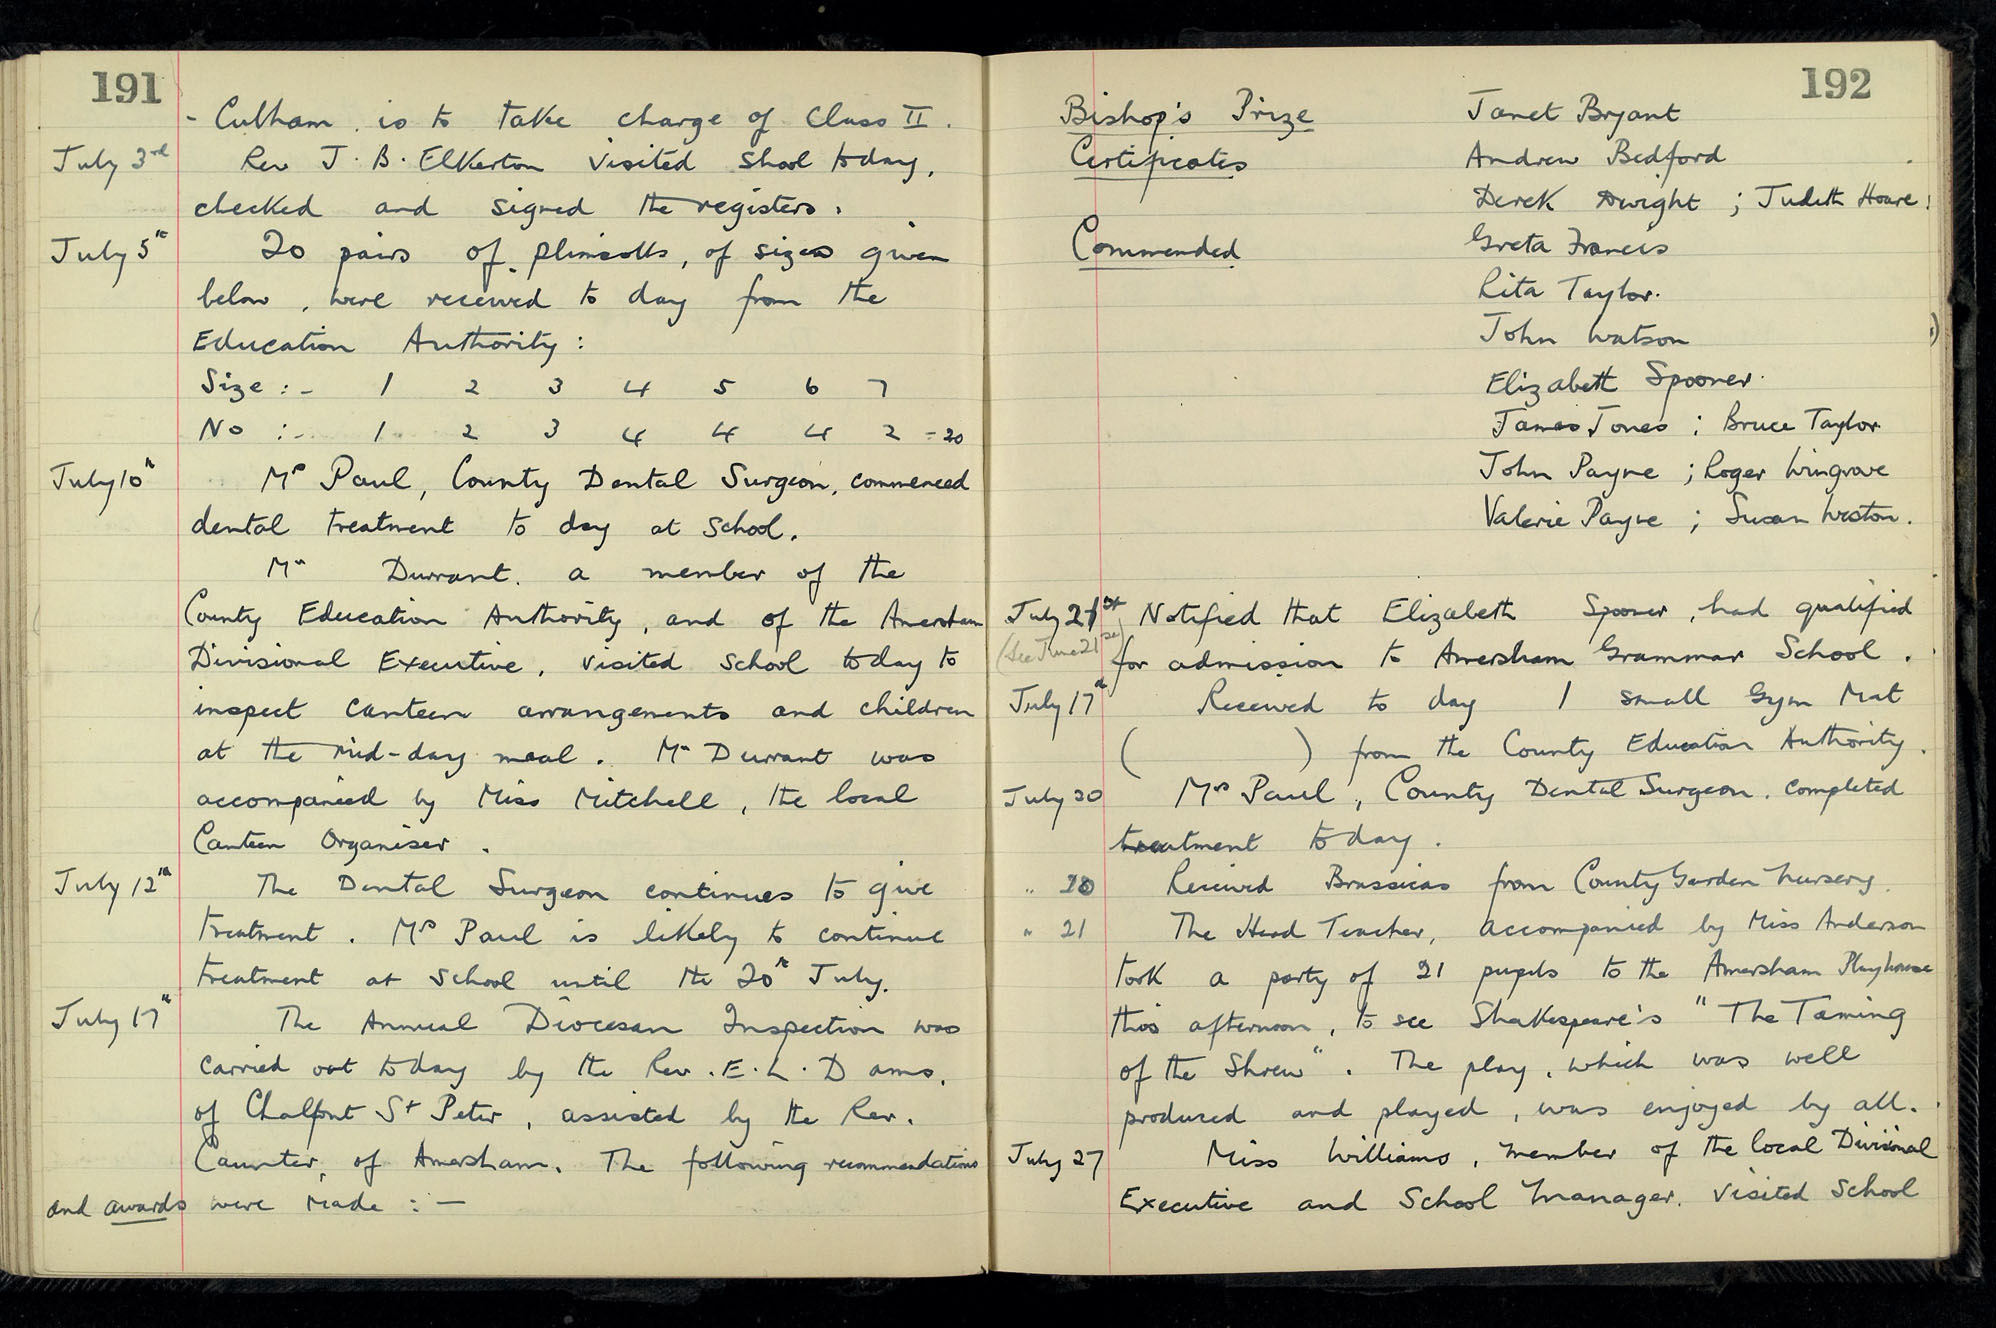 191
- Culham . is to take charge of Class II .
July 3rd Rev J. B. Elkerton visited shool today,
checked and signed the registers.
July 5th 20 pairs of plimsolls, of sizes given
below, were received to day from the
Education Authority :
Size :- 1 2 3 4 5 6 7
No :- 1 2 3 4 4 4 2 - 20
July 10th Mrs Paul, County Dental Surgeon, commenced
dental treatment to day at School.
Mr Durrant. a member of the
County Education Authority, and of the Amersham
Divisional Executive, visited school today to
inspect canteen arrangements and children
at the mid-day meal. Mr Durrant was
accompanied by Miss Mitchell, the local
Canteen Organiser .
July 12th The Dental Surgeon continues to give
treatment. Mrs Paul is likely to continue
treatment at school until the 20th July.
July 17th The Annual Diocesan Inspection was
carried out today by the Rev. E. L. Dams,
of Chalfont St Peter, assisted by the Rev.
Caunter, of Amersham. The following recommendations
and awards were made :-
192
Bishop's Prize Janet Bryant
Certificates Andrew Bedford
Derek Dwight ; Judith Hoare
Commended Greta Francis
Rita Taylor.
John Watson
Elizabeth Spooner.
James Jones ; Bruce Taylor
John Payne ; Roger Wingrove
Valerie Payne ; Susan Weston.
July 21st Notified that Elizabeth Spooner, had qualified
(See June 21st) for admission to Amersham Grammar School .
July 17th Received to day 1 small Gym Mat
( ) from the County Education Authority.
July 20 Mrs Paul, County Dental Surgeon. completed
treatment today.
" 20 Received Brassicas from County Garden Nursery.
" 21 The Head Teacher, accompanied by Miss Anderson
took a party of 21 pupils to the Amersham Playhouse
this afternoon, to see Shakespeare's "The Taming
of the Shrew". The play, which was well
produced and played, was enjoyed by all.
July 27 Miss Williams, member of the local Divisional
Executive and School Manager. visited School